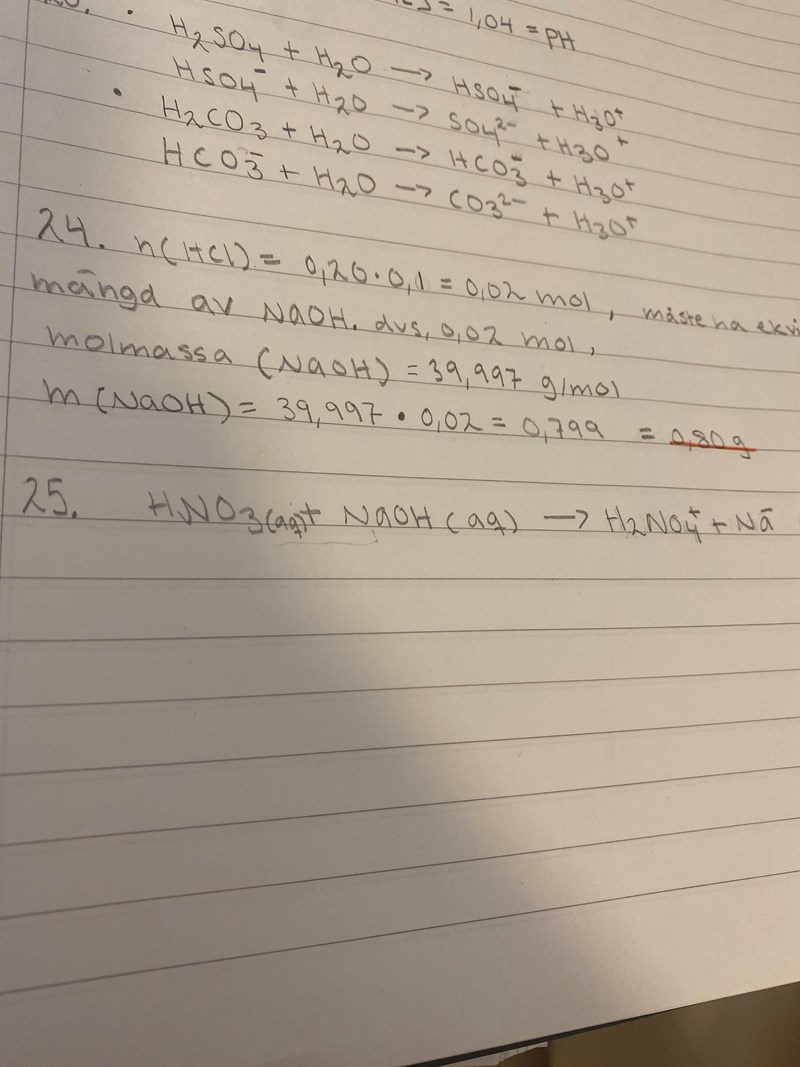 = 1,04 = PH
• H₂SO₄ + H₂O → HSO₄⁻ + H₃O⁺
HSO₄⁻ + H₂O → SO₄²⁻ + H₃O⁺
• H₂CO₃ + H₂O → HCO₃⁻ + H₃O⁺
HCO₃⁻ + H₂O → CO₃²⁻ + H₃O⁺
24. n(HCl) = 0,20 · 0,1 = 0,02 mol, måste ha ekvi
mängd av NaOH. dvs, 0,02 mol,
molmassa (NaOH) = 39,997 g/mol
m (NaOH) = 39,997 · 0,02 = 0,799 = 0,80g
25. HNO₃(aq) + NaOH (aq) → H₂NO₄⁺ + Na⁻